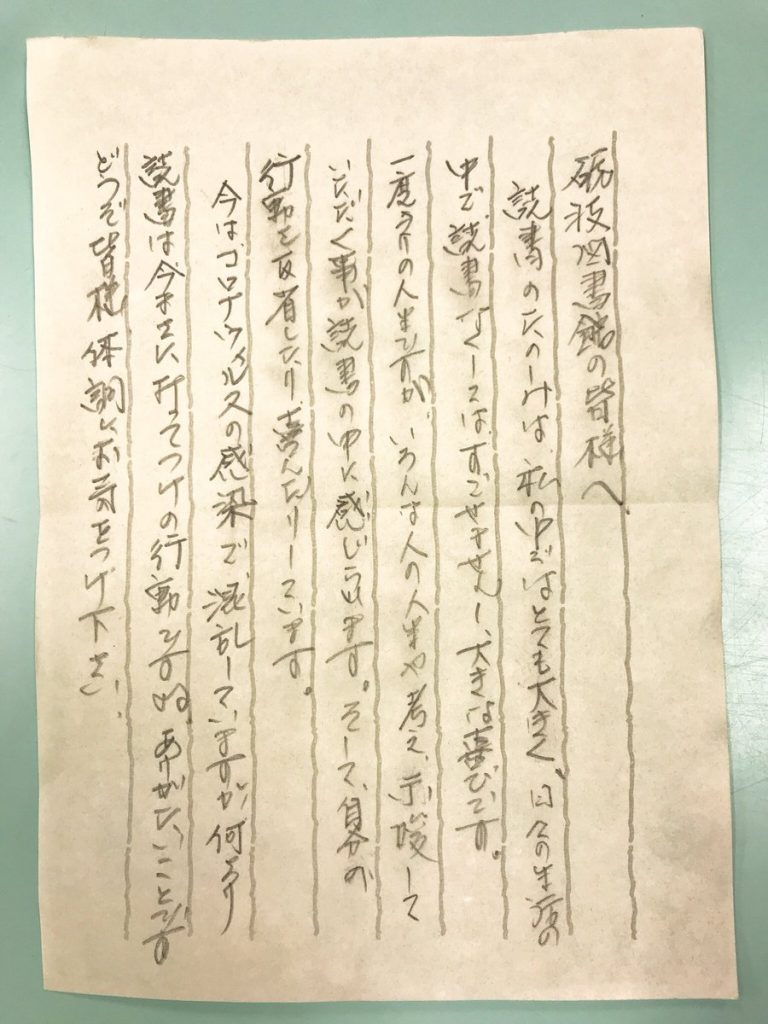 砺波図書館の皆様へ
読書のたのしみは、私の中ではとても大きく、日々の生活の
中で読書なくしてはすごせませんし、大きな喜びです。
一度きりの人生ですが、いろんな人の人生や考え、示唆して
いただく事が読書の中に感じられます。そして、自分の
行動を反省したり、喜んだりしています。
今はコロナウイルスの感染で混乱していますが、何より
読書は今まさに打ってつけの行動ですね。ありがたいことです
どうぞ皆様体調にお気をつけ下さい。